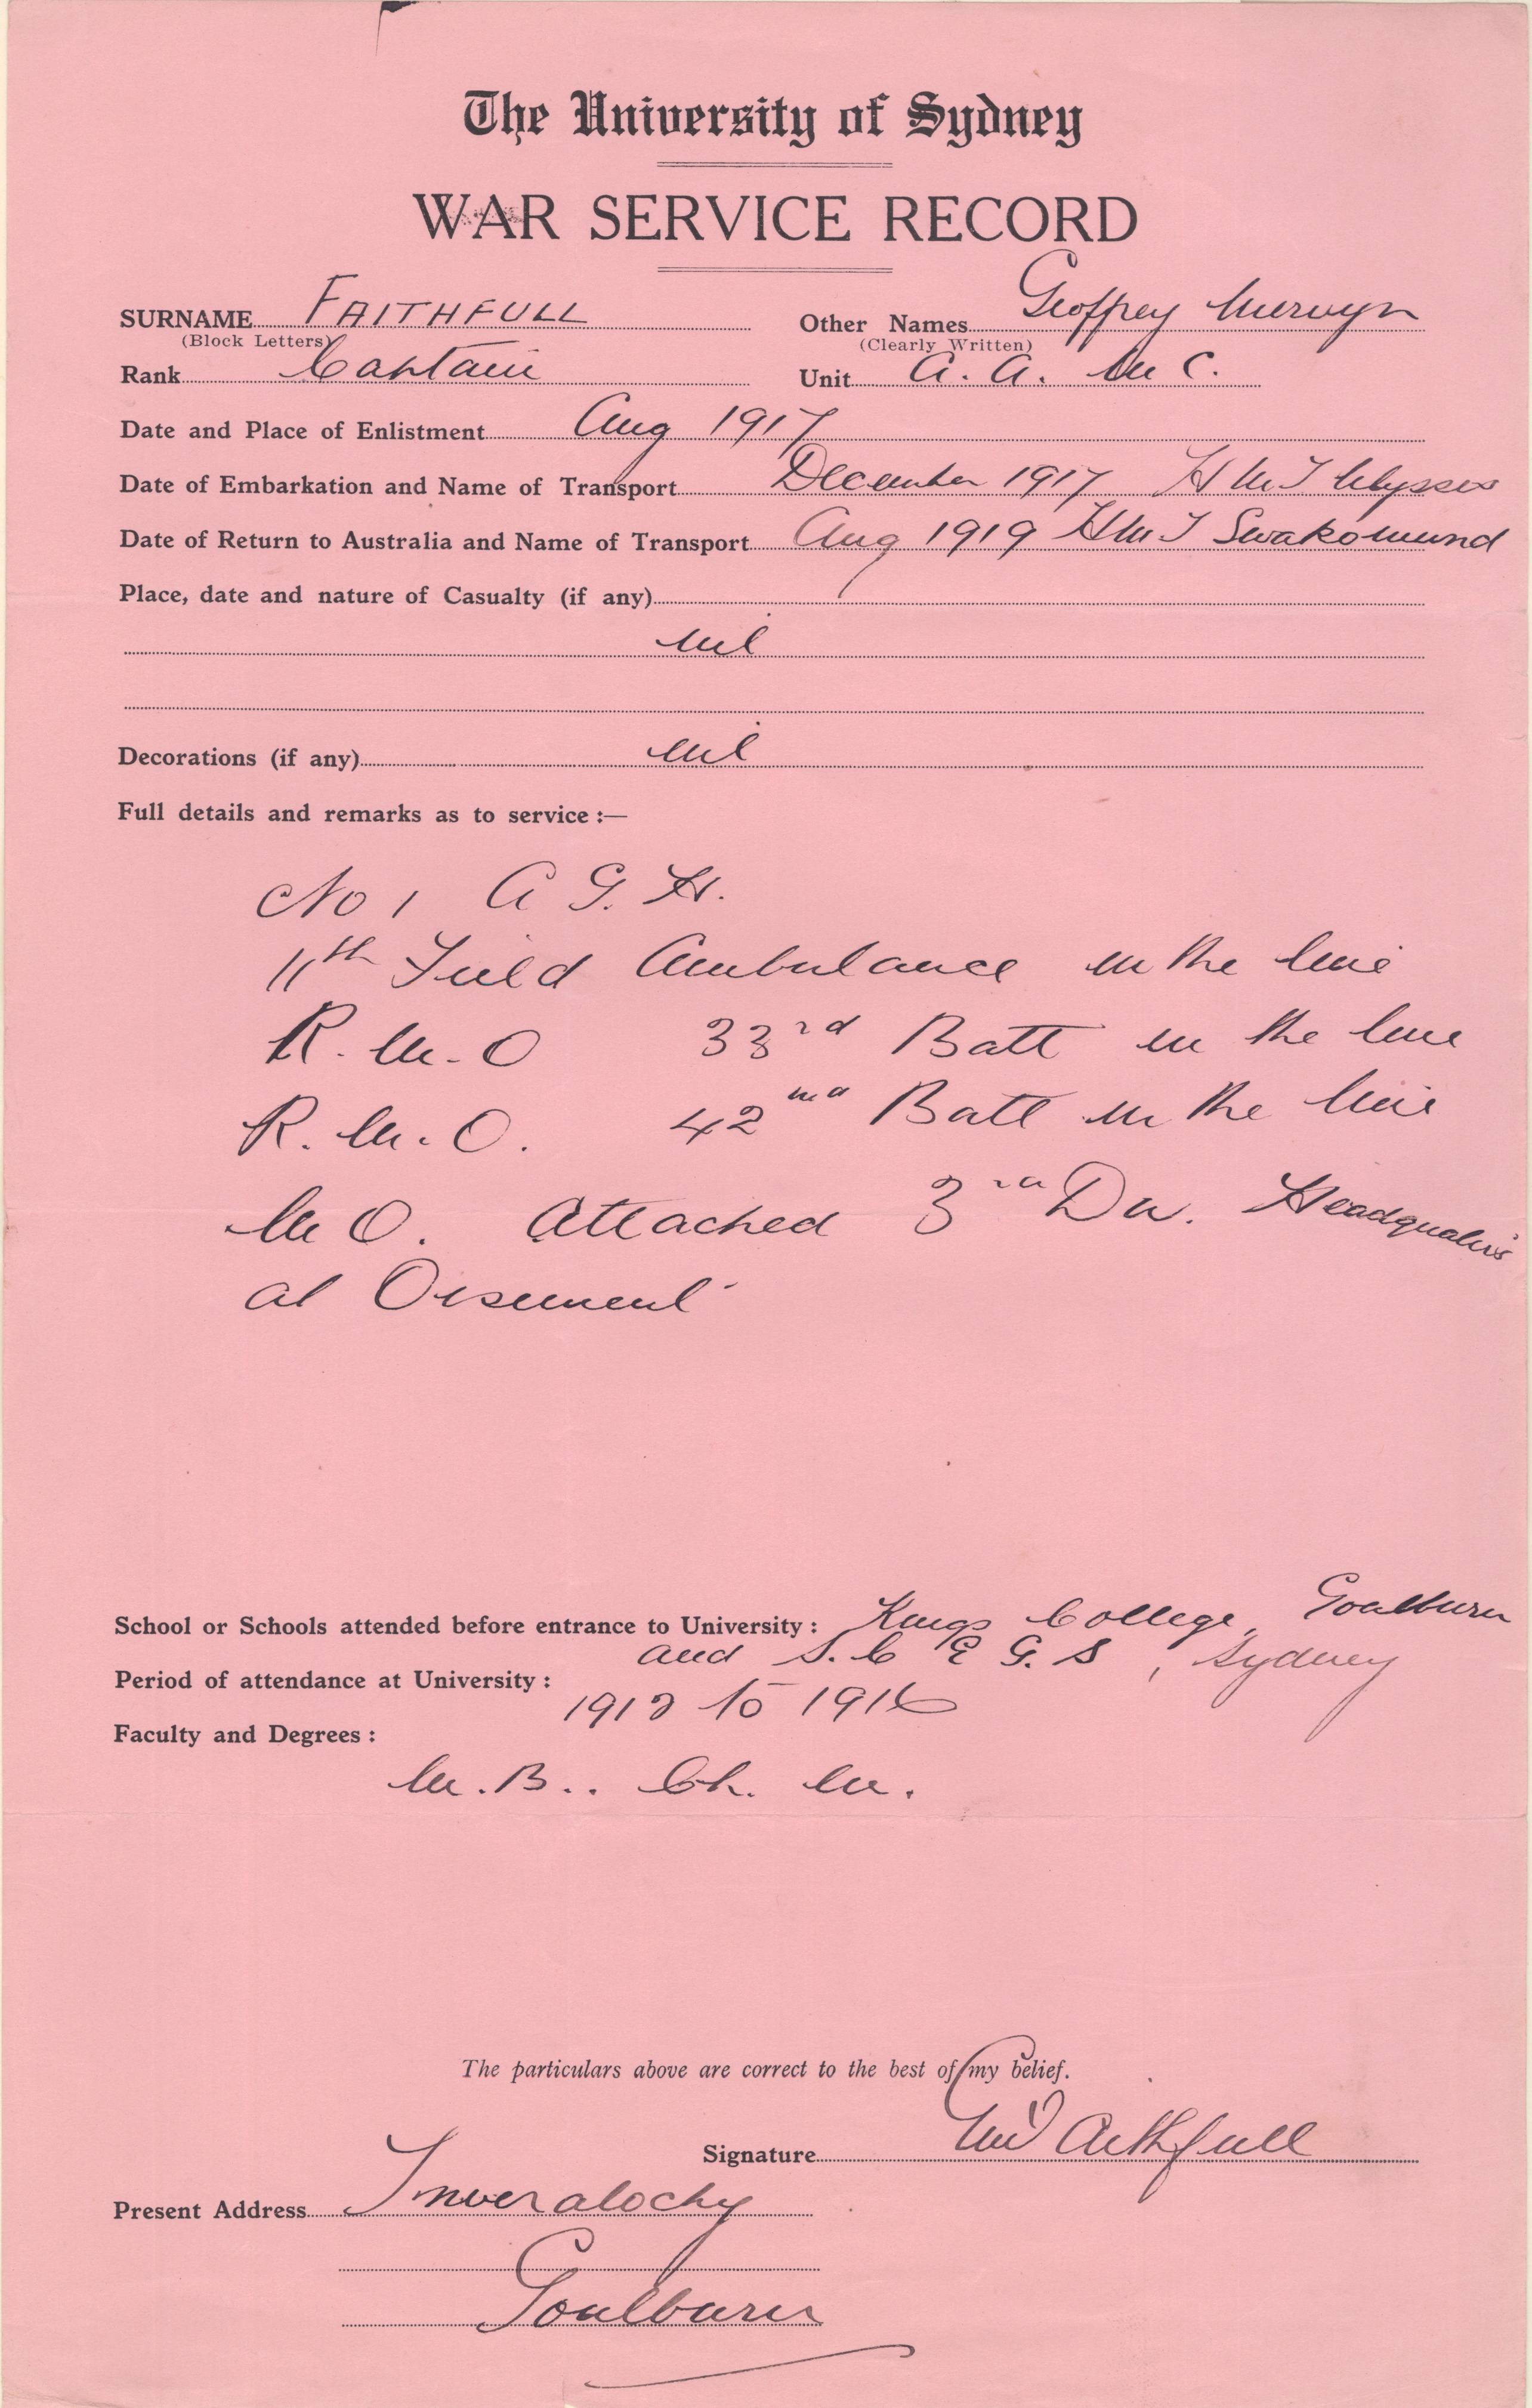 The University of Sydney
WAR SERVICE RECORD
SURNAME FAITHFULL Other Names Geoffrey Mervyn
(Block Letters) (Clearly Written)
Rank Captain Unit A. A. M C.
Date and Place of Enlistment Aug 1917
Date of Embarkation and Name of Transport December 1917 H M T Ulysses
Date of Return to Australia and Name of Transport Aug 1919 H M T Swakomund
Place, date and nature of Casualty (if any)
nil
Decorations (if any) nil
Full details and remarks as to service :—
No 1 A G. H.
11th Field Ambulance in the line
R. M. O 33rd Batt in the line
R. M. O. 42nd Batt in the line
M O. Attached 3rd Div. Headquarters
at Oisement
School or Schools attended before entrance to University : Kings College, Goulburn
and S. C E G. S, Sydney
Period of attendance at University :
1912 to 1916
Faculty and Degrees :
M. B.. Ch. M.
The particulars above are correct to the best of my belief.
Signature Faithfull
Present Address Inveralochy
Goulburn